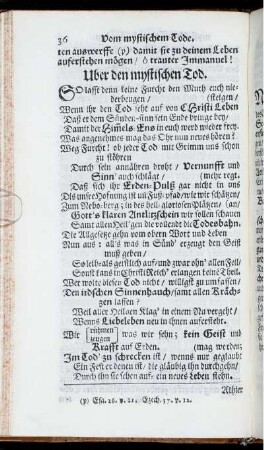 36 Vom mystischem Tode.
ten auswerffe (p) damit sie zu deinem Leben
auferstehen mögen / ô trauter Immanuel!
Uber den mystischen Tod.
SO lasst denn keine Furcht den Muth euch nie-
derbeugen / (steigen /
Wenn ihr den Tod seht auf von Christi Leben
Daß er dem Sünden-sinn sein Ende bringe bey /
Damit der Him̃els-Ens in euch werd wieder frey.
Was angenehmes mag das Ohr nun neues hören!
Weg Furcht! ob jeder Tod mit Grimm uns schon
zu stöhren
Durch sein annähren droht / Vernunfft und
Sinn auch schlägt / (mehr regt.
Daß sich ihr Erden-Pulß gar nicht in uns
Diß unsre Hoffnung ist und wie wir schätzen /
Zum in des heil- (an /
Gott's klaren Antlitzschein wir sollen schauen
Samt allen Heil'gen die vollendt die Todenbahn.
Die Allgesetze gehn vom obern Wort und Leben
Nun aus: all's was in Sünd' erzeugt den Geist
muß geben /
So leib- als geistlich auf / und zwar ohn' allen Feil /
Sonst kans in Christi Reich' erlangen keine Theil.
Wer wolte diesen Tod nicht / willigst zu umfassen /
Den irdschen Sinnenhauch / samt allen Krächs-
zen lassen?
Weil aber in einem Nu vergeht /
Wenns Liebeleben neu in ihnen aufersteht.
Wir rühmen was wir sehn; kein Geist und
zeugen
Krafft auf Erden. (mag werden;
Im Tod' zu schrecken ist / wenns nur geglaubt
Ein Fest er denen ist / die gläubig ihn durchgehn /
Durch ihn sie schon auf- ein neues Leben stehn.
Athier
(p) Esa. 26. v. 21. Ezech. 37. v. 12.